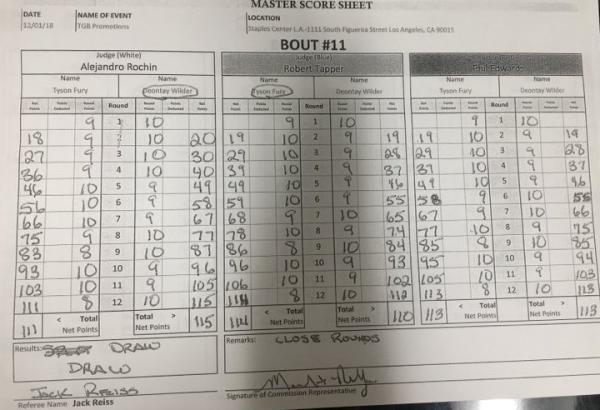 MASTER SCORE SHEET
DATE NAME OF EVENT LOCATION
12/01/18 TGB Promotions Staples Center L.A.-1111 South Figueroa Street Los Angeles, CA 90015
BOUT #11
Judge (White) Judge (Blue)
Alejandro Rochin Robert Tapper Phil Edwards
Name Name Name Name Name Name
Tyson Fury Deontay Wilder Tyson Fury Deontay Wilder Tyson Fury Deontay Wilder
Net Points Points Deducted Round Points Round Round Points Points Deducted Net Points Net Points Points Deducted Round Points Round Round Points Points Deducted Net Points Net Points Points Deducted Round Points Round Round Points Points Deducted Net Points
9 1 10 9 1 10 9 1 10
18 9 2 10 20 19 10 2 9 19 19 10 2 9 19
27 9 3 10 30 29 10 3 9 28 29 10 3 9 28
36 9 4 10 40 39 10 4 9 37 39 10 4 9 37
46 10 5 9 49 49 10 5 9 46 49 10 5 9 46
56 10 6 9 58 59 10 6 9 55 58 9 6 10 56
66 10 7 9 67 68 9 7 10 65 67 9 7 10 66
75 9 8 10 77 78 10 8 9 74 77 10 8 9 75
83 8 9 10 87 86 8 9 10 84 85 8 9 10 85
93 10 10 9 96 96 10 10 9 93 95 10 10 9 94
103 10 11 9 105 106 10 11 9 102 105 10 11 9 103
111 8 12 10 115 114 8 12 10 112 113 8 12 10 113
111 < Total > 115 114 < Total > 110 113 < Total > 113
Net Points Net Points Net Points Net Points Net Points Net Points
Results: DRAW Remarks: CLOSE ROUNDS
DRAW
JACK REISS
Referee Name Jack Reiss Signature of Commission Representative